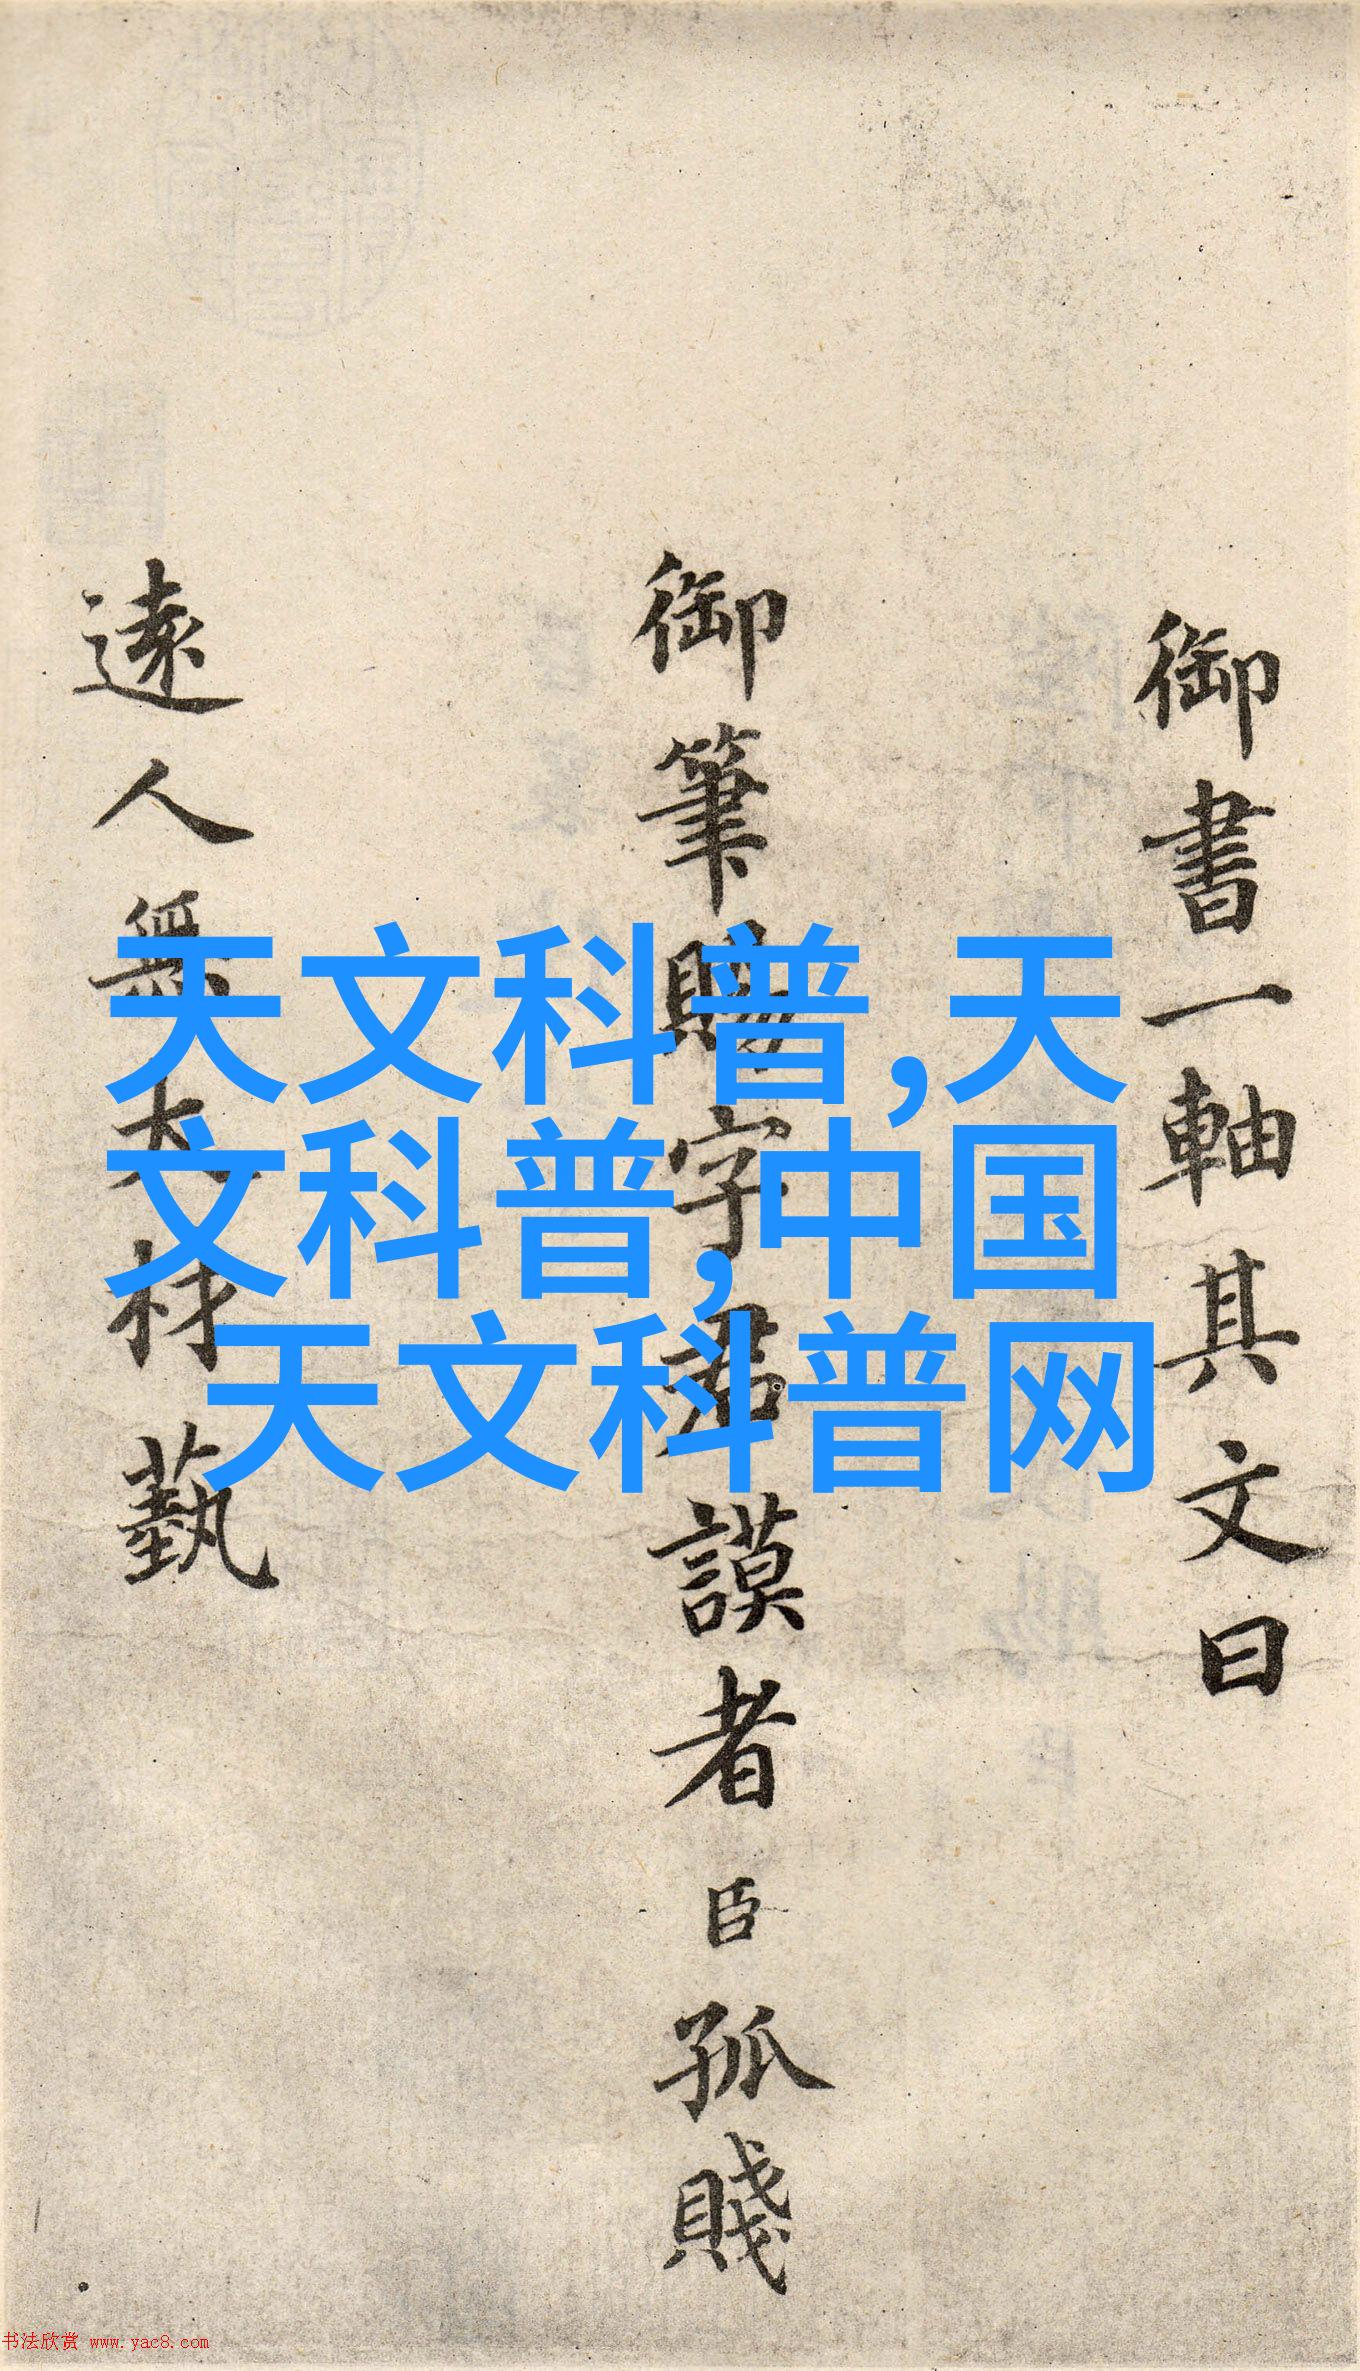 御書一軸其文曰
御筆賜字君謨者臣孤賤
遠人無大材藝
天文科普,天
文科普,中国
天文科普网
书法欣赏 www.yac8.com